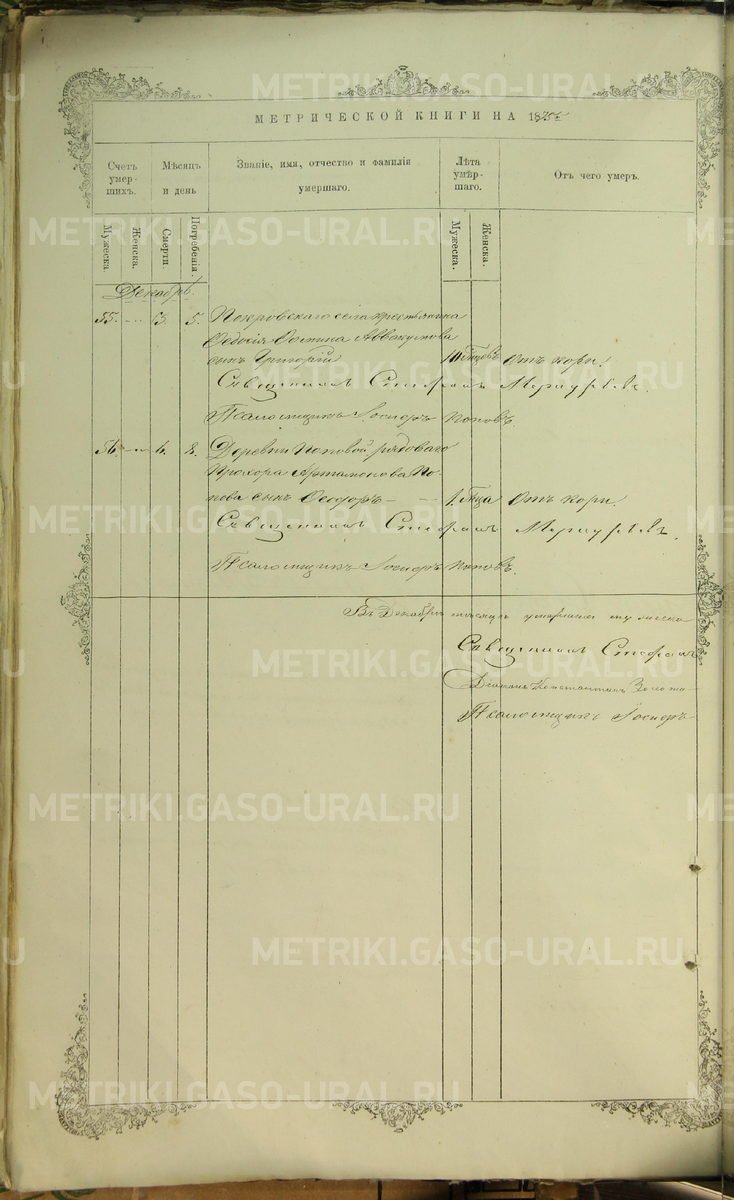 МЕТРИЧЕСКОЙ КНИГИ НА 18
Счетъ умер- шихъ.
Мѣсяцъ и день
Званіе, имя, отчество и фамилія умершаго.
Лѣта умер- шаго.
Отъ чего умеръ.
Мужеска.
Женска.
Смерти.
Погребенія.
Мужеска.
Женска.
Декабрь.
55. - 3. 5. Покровскаго села крестьянина
Аввакумова
сынъ Григорій 10 мѣсѣ. Отъ кори.
Священникъ Стефанъ Меркурьевъ.
Псаломщикъ Іосифъ Поповъ.
56. - 6. 8. Деревни Поповой рядоваго
Прохора Артамонова По-
пова сынъ Ѳеодоръ - - 1. года Отъ кори
Священникъ Стефанъ Меркурьевъ.
Псаломщикъ Іосифъ Поповъ.
Въ Декабрѣ мѣсяцѣ умершихъ мужеска
Священникъ Стефанъ
Діаконъ Константинъ
Псаломщикъ Іосифъ
METRIKI.GASO-URAL.RU